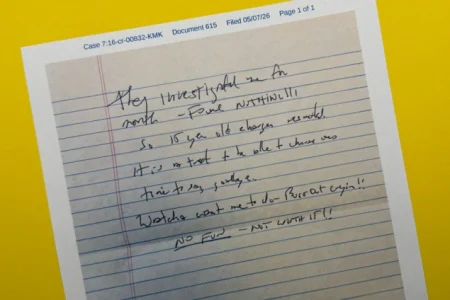 Case 7:16-cr-00832-KMK Document 615 Filed 05/07/26 Page 1 of 1
They investigated me for
month – Found NOTHING!!!
So 15 year old charges resulted.
It is a treat to be able to choose ones
time to say goodbye.
Watcha want me to do – Burst out cryin!!
NO FUN – NOT WORTH IT!!